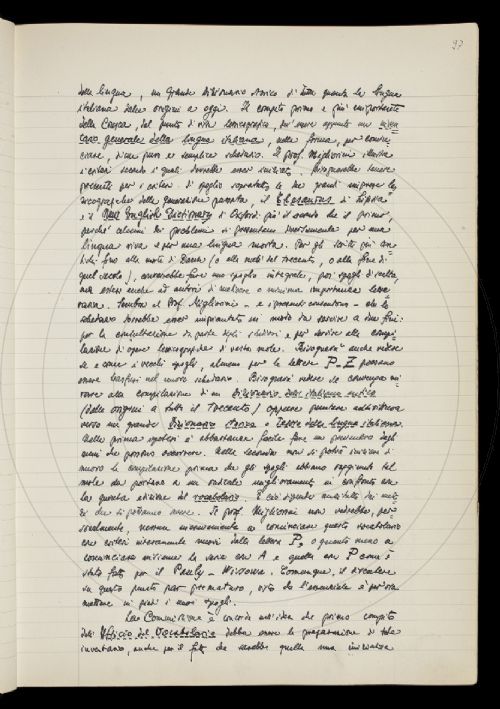 97
della lingua, un grande Dizionario storico di tutta quanta la lingua
italiana dalle origini a oggi. Il compito primo e più importante
della Crusca, dal punto di vista lessicografico, dev'essere appunto un inven-
tario generale della lingua italiana, nella forma, per comin-
ciare, di un puro e semplice schedario. Il prof. Migliorini illustra
i criteri secondo i quali dovrebbe esser iniziato. Bisognerebbe tenere
presente per i criteri di spoglio soprattutto le due grandi imprese le-
ssicografiche della generazione passata, il Thesaurus di Lipsia
e il New English Dictionary di Oxford: più il secondo che il primo,
perché alcuni dei problemi si presentano diversamente per una
lingua viva e per una lingua morta. Per gli testi più an-
tichi fino alla morte di Dante (o alla metà del trecento, o alla fine di
quel secolo), converrebbe fare uno spoglio integrale, poi spogli di scelta,
ma estesi anche ad autori di mediocre o minima importanza lette-
raria. Sembra al Prof. Migliorini - e i presenti consentono - che lo
schedario dovrebbe esser impiantato in modo da servire a due fini:
per la consultazione da parte degli studiosi e per servire alla compi-
lazione di opere lessicografiche di vasta mole. Bisognerà anche vedere
se e come i vecchi spogli, almeno per le lettere P-Z possano
essere trasfusi nel nuovo schedario. Bisognerà vedere se convenga mi-
rare alla compilazione di un Dizionario dell'italiano antico
(dalle origini a tutto il Trecento) oppure puntare addirittura
verso un grande Dizionario storico o Tesoro della lingua italiana.
Nella prima ipotesi è abbastanza facile fare un preventivo degli
anni che possono occorrere. Nella seconda non si potrà iniziare di
nuovo la compilazione prima che gli spogli abbiano raggiunto tal
mole da portare a un radicale miglioramento in confronto con
la quinta edizione del vocabolario. E ciò dipende anzitutto dai mez-
zi che si potranno avere. Il prof. Migliorini non vedrebbe, per-
sonalmente, nessun inconveniente a cominciare questo vocabolario
con criteri interamente nuovi dalla lettera P, o quanto meno a
cominciare insieme la serie con A e quella con P come è
stato fatto per il Pauly-Wissowa. Comunque, il discutere
su questo punto pare prematuro, visto che l'essenziale è per ora
mettere in piedi i nuovi spogli.
La Commissione è concorde nell'idea che primo compito
dell'Ufficio del Vocabolario debba essere la preparazione di tale
inventario, anche per il fatto che sarebbe quella una iniziativa